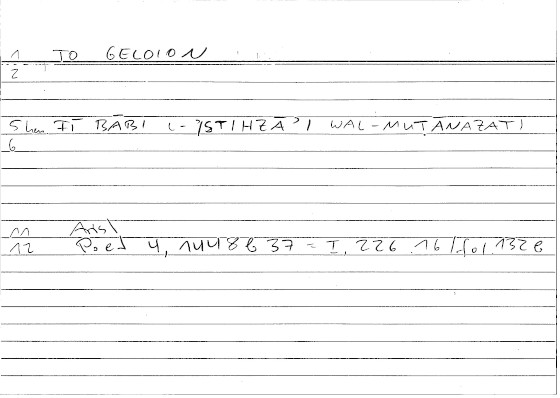 1 TO GELOION
2
5 hm FĪ BĀBI L-ʾISTIHZĀʾI WAL-MUṬĀNAZATI
6
11 Arist
12 Poet 4, 1448b 37 = I, 226 16 / fol 132b